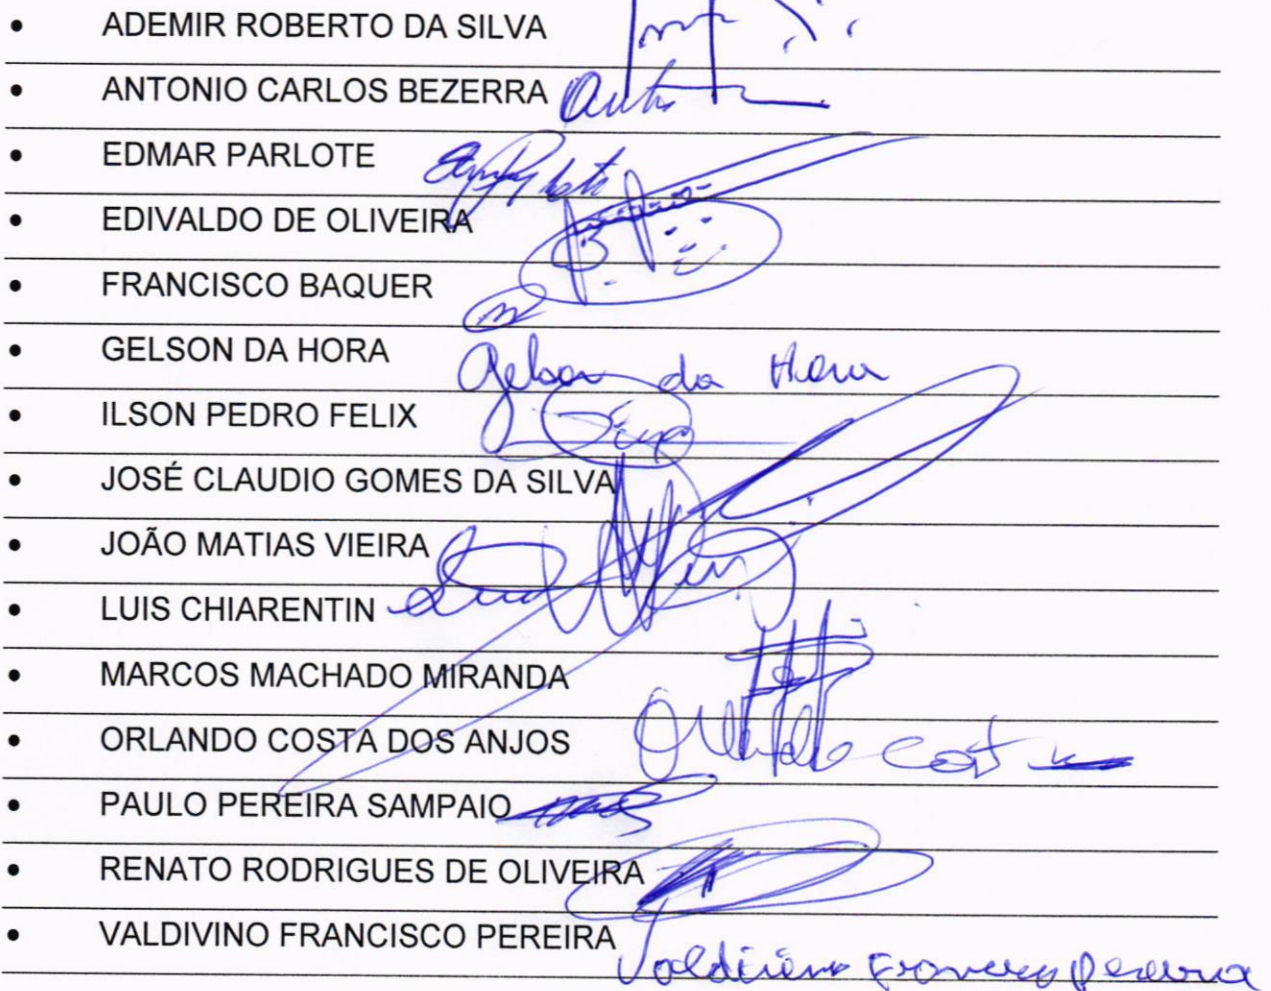 • ADEMIR ROBERTO DA SILVA
• ANTONIO CARLOS BEZERRA
• EDMAR PARLOTE
• EDIVALDO DE OLIVEIRA
• FRANCISCO BAQUER
• GELSON DA HORA Gelson da Hora
• ILSON PEDRO FELIX
• JOSÉ CLAUDIO GOMES DA SILVA
• JOÃO MATIAS VIEIRA
• LUIS CHIARENTIN
• MARCOS MACHADO MIRANDA
• ORLANDO COSTA DOS ANJOS Orlando Costa
• PAULO PEREIRA SAMPAIO
• RENATO RODRIGUES DE OLIVEIRA
• VALDIVINO FRANCISCO PEREIRA Valdivino Francisco Pereira